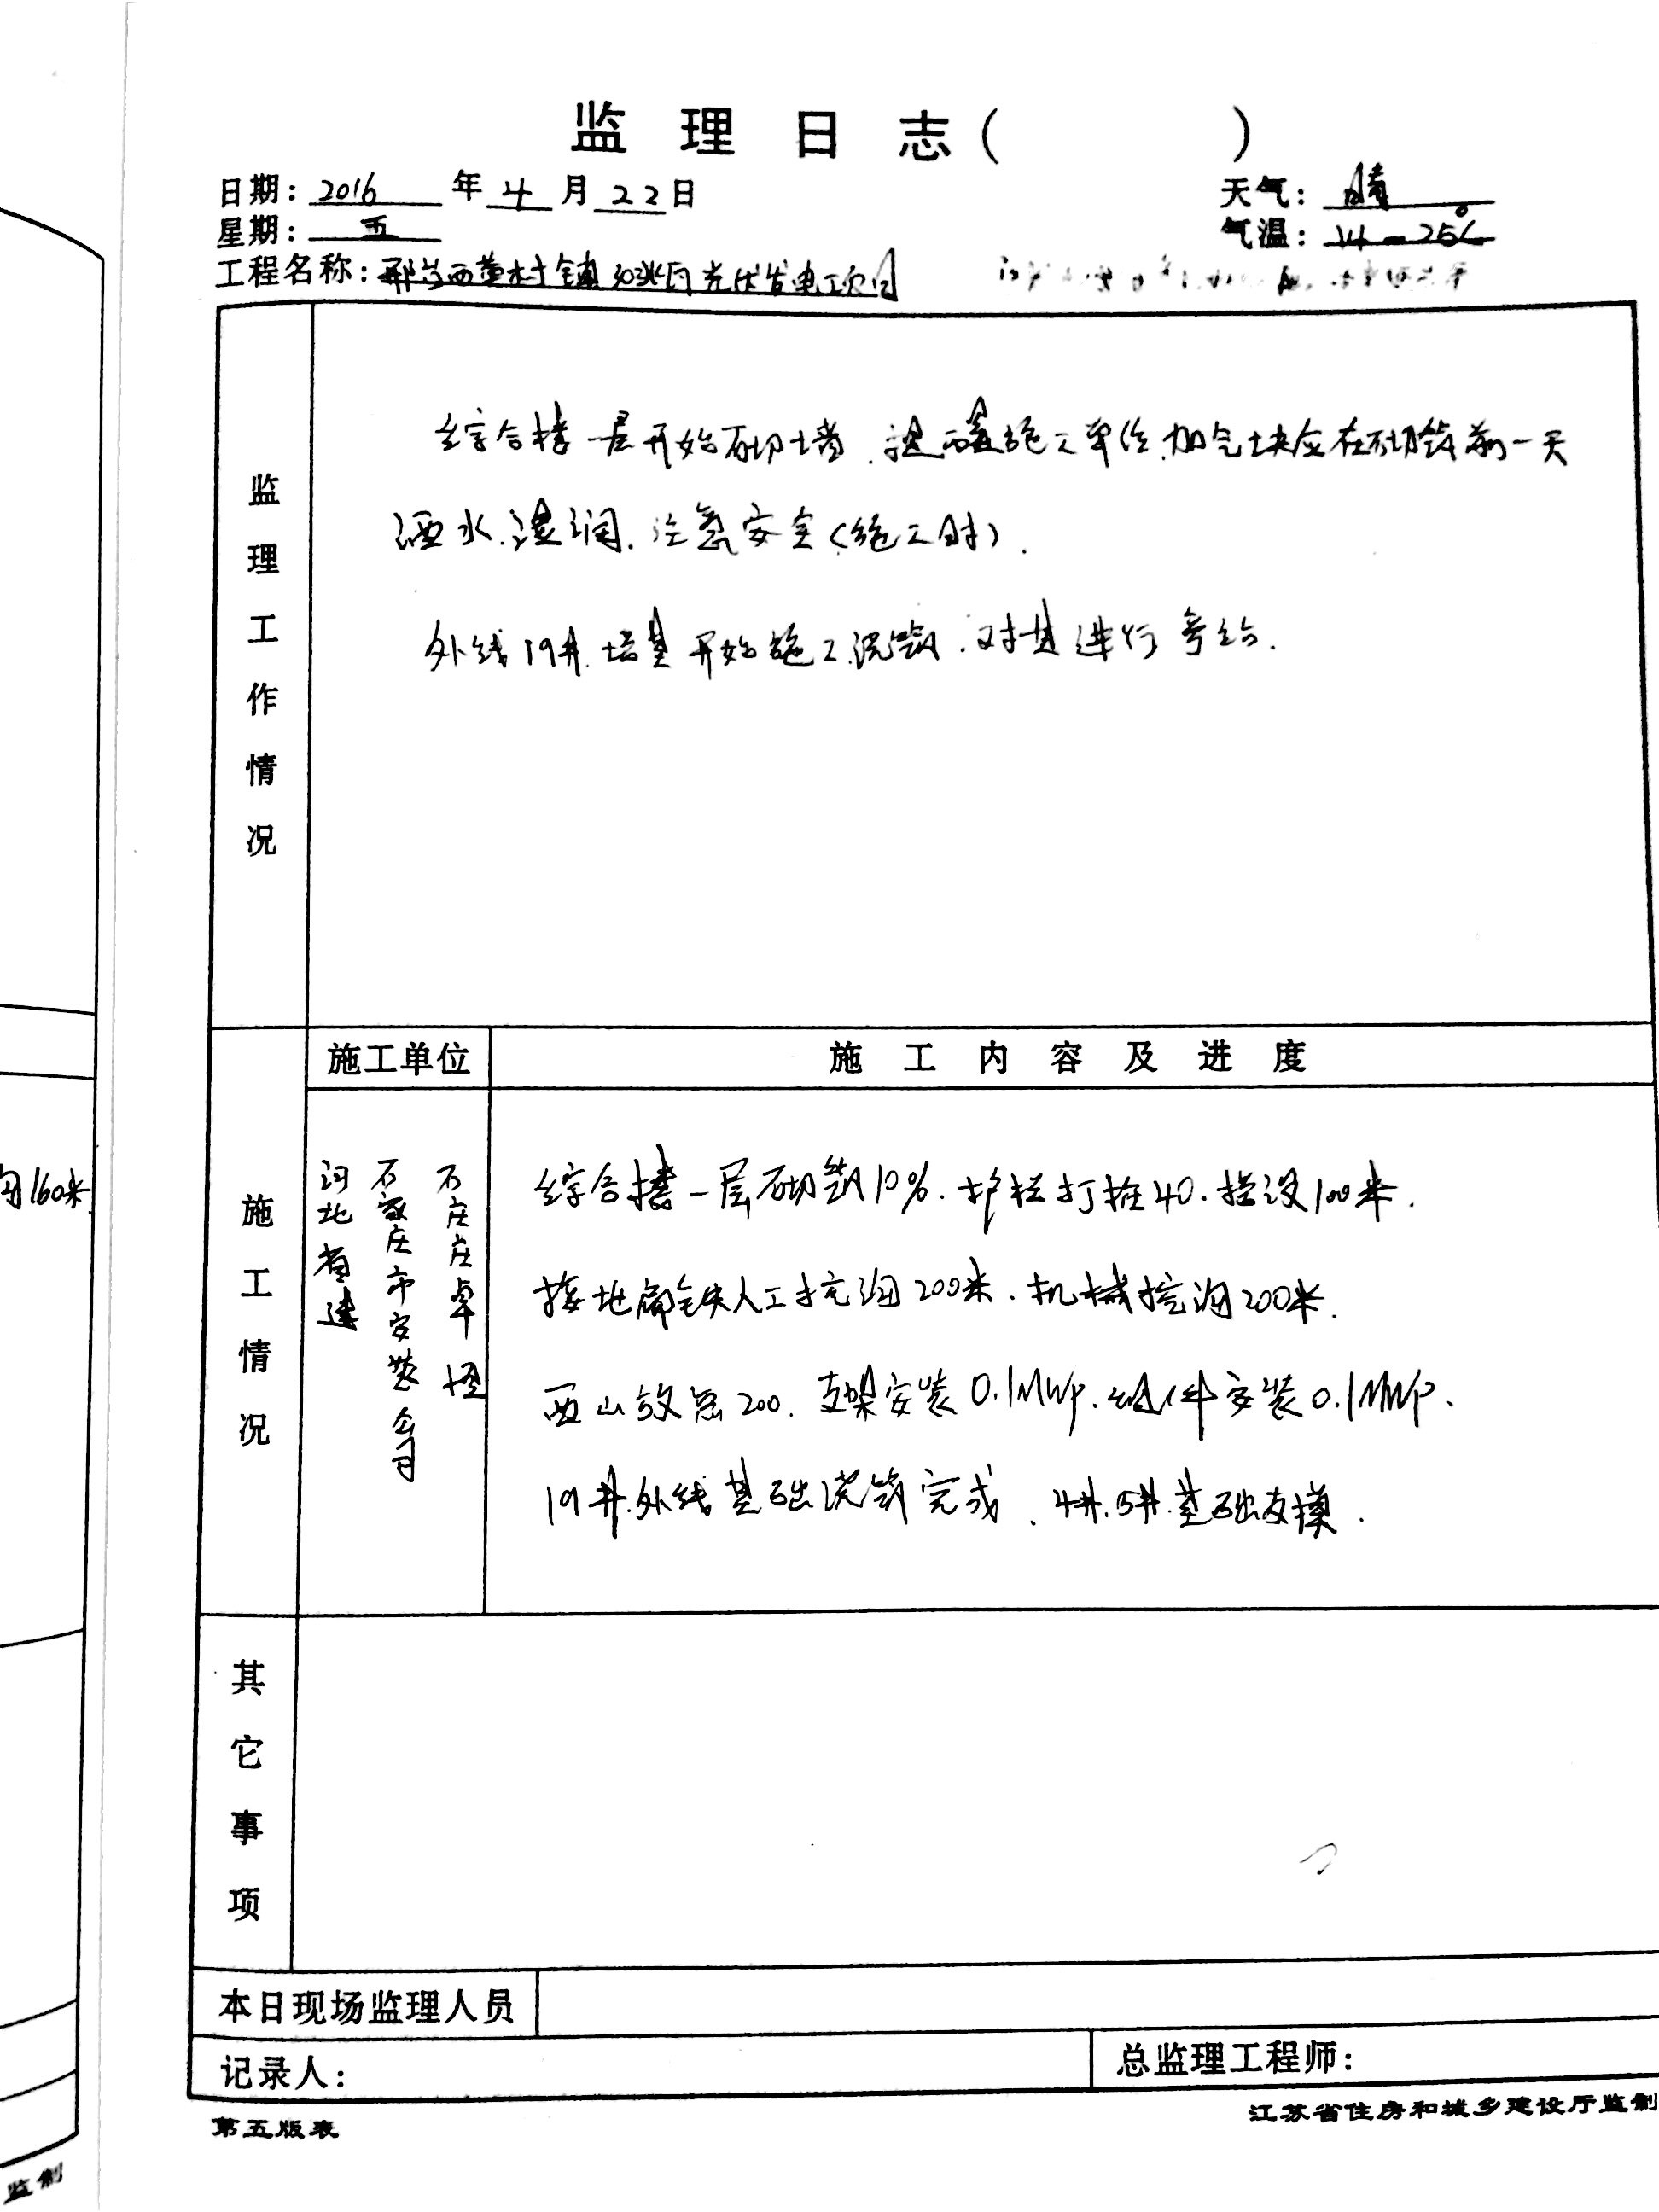 监理日志（ ）
日期：2016年4月22日
天气：晴
星期：五
气温：14-25℃
工程名称：邢台西黄村镇30兆瓦光伏发电项目
监理工作情况
综合楼一层开始砌墙，提醒施工单位加气块应在砌筑前一天
洒水湿润，注意安全（施工时）．
外线19井塔基开始施工浇筑．对其进行旁站．
施工情况
施工单位
施工内容及进度
河北省建
石家庄市安装公司
石庄庄卓
综合楼一层砌筑10%．护栏打桩40．搭设100米．
接地扁铁人工挖沟200米．机械挖沟200米．
西山放点200．支架安装0.1MWP．组件安装0.1MWP．
19井外线基础浇筑完成．4井．5井基础支模．
其它事项
本日现场监理人员
记录人：
总监理工程师：
第五版表
江苏省住房和城乡建设厅监制
沟160米
监制